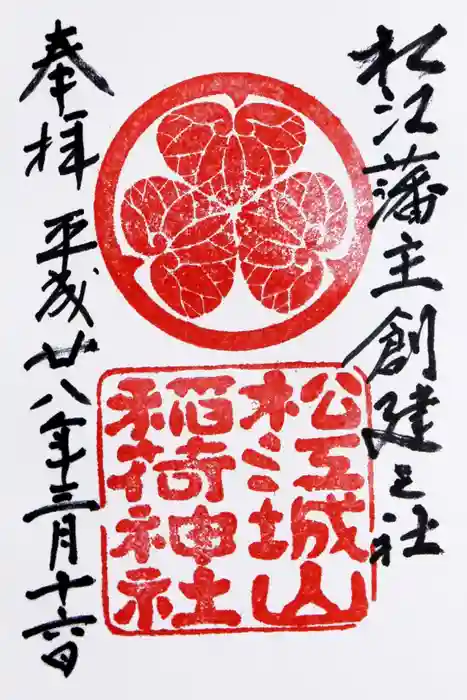 松江藩主創建之社
松江城山
稲荷神社
奉拝 平成廿八年三月十六日